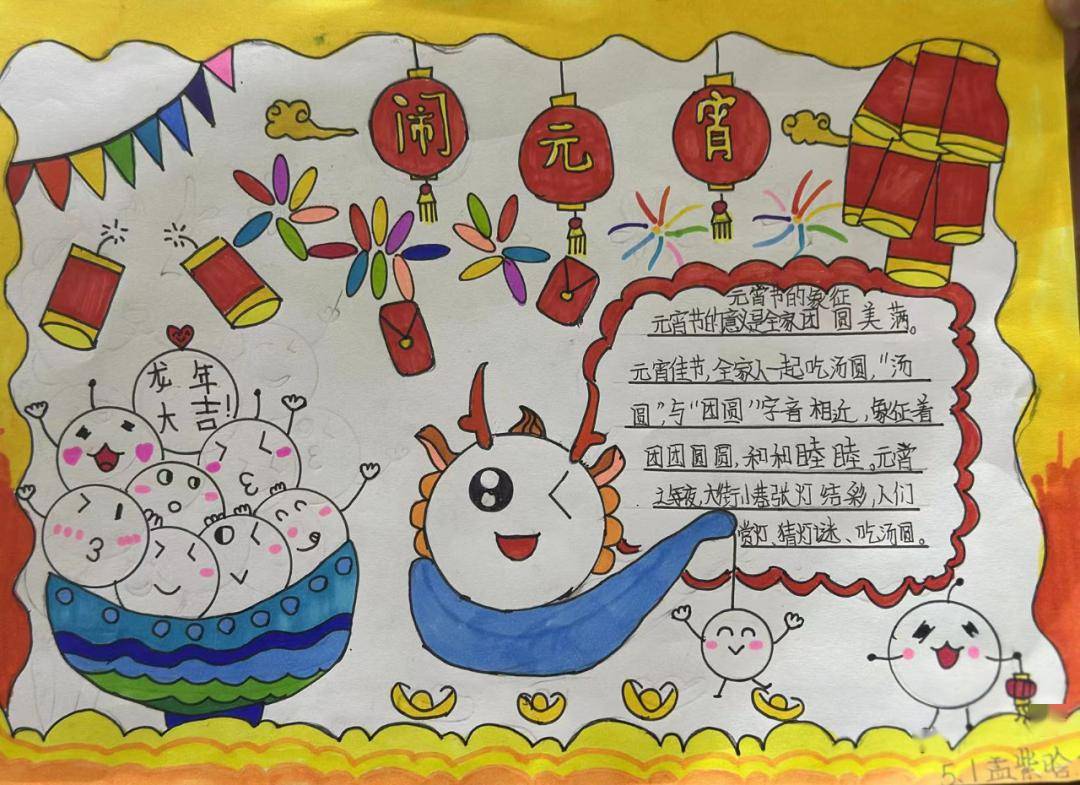 闹元宵
元宵节的象征
元宵节的意义是全家团 圆 美 满。
元宵佳节,全家人一起吃汤圆,"汤
圆",与"团圆"字音相近,象征着
团团圆圆,和和睦睦。元宵
之年夜,大街小巷张灯结彩,人们
赏灯、猜灯谜、吃汤圆。
龙年
大吉!
5.1孟紫晗